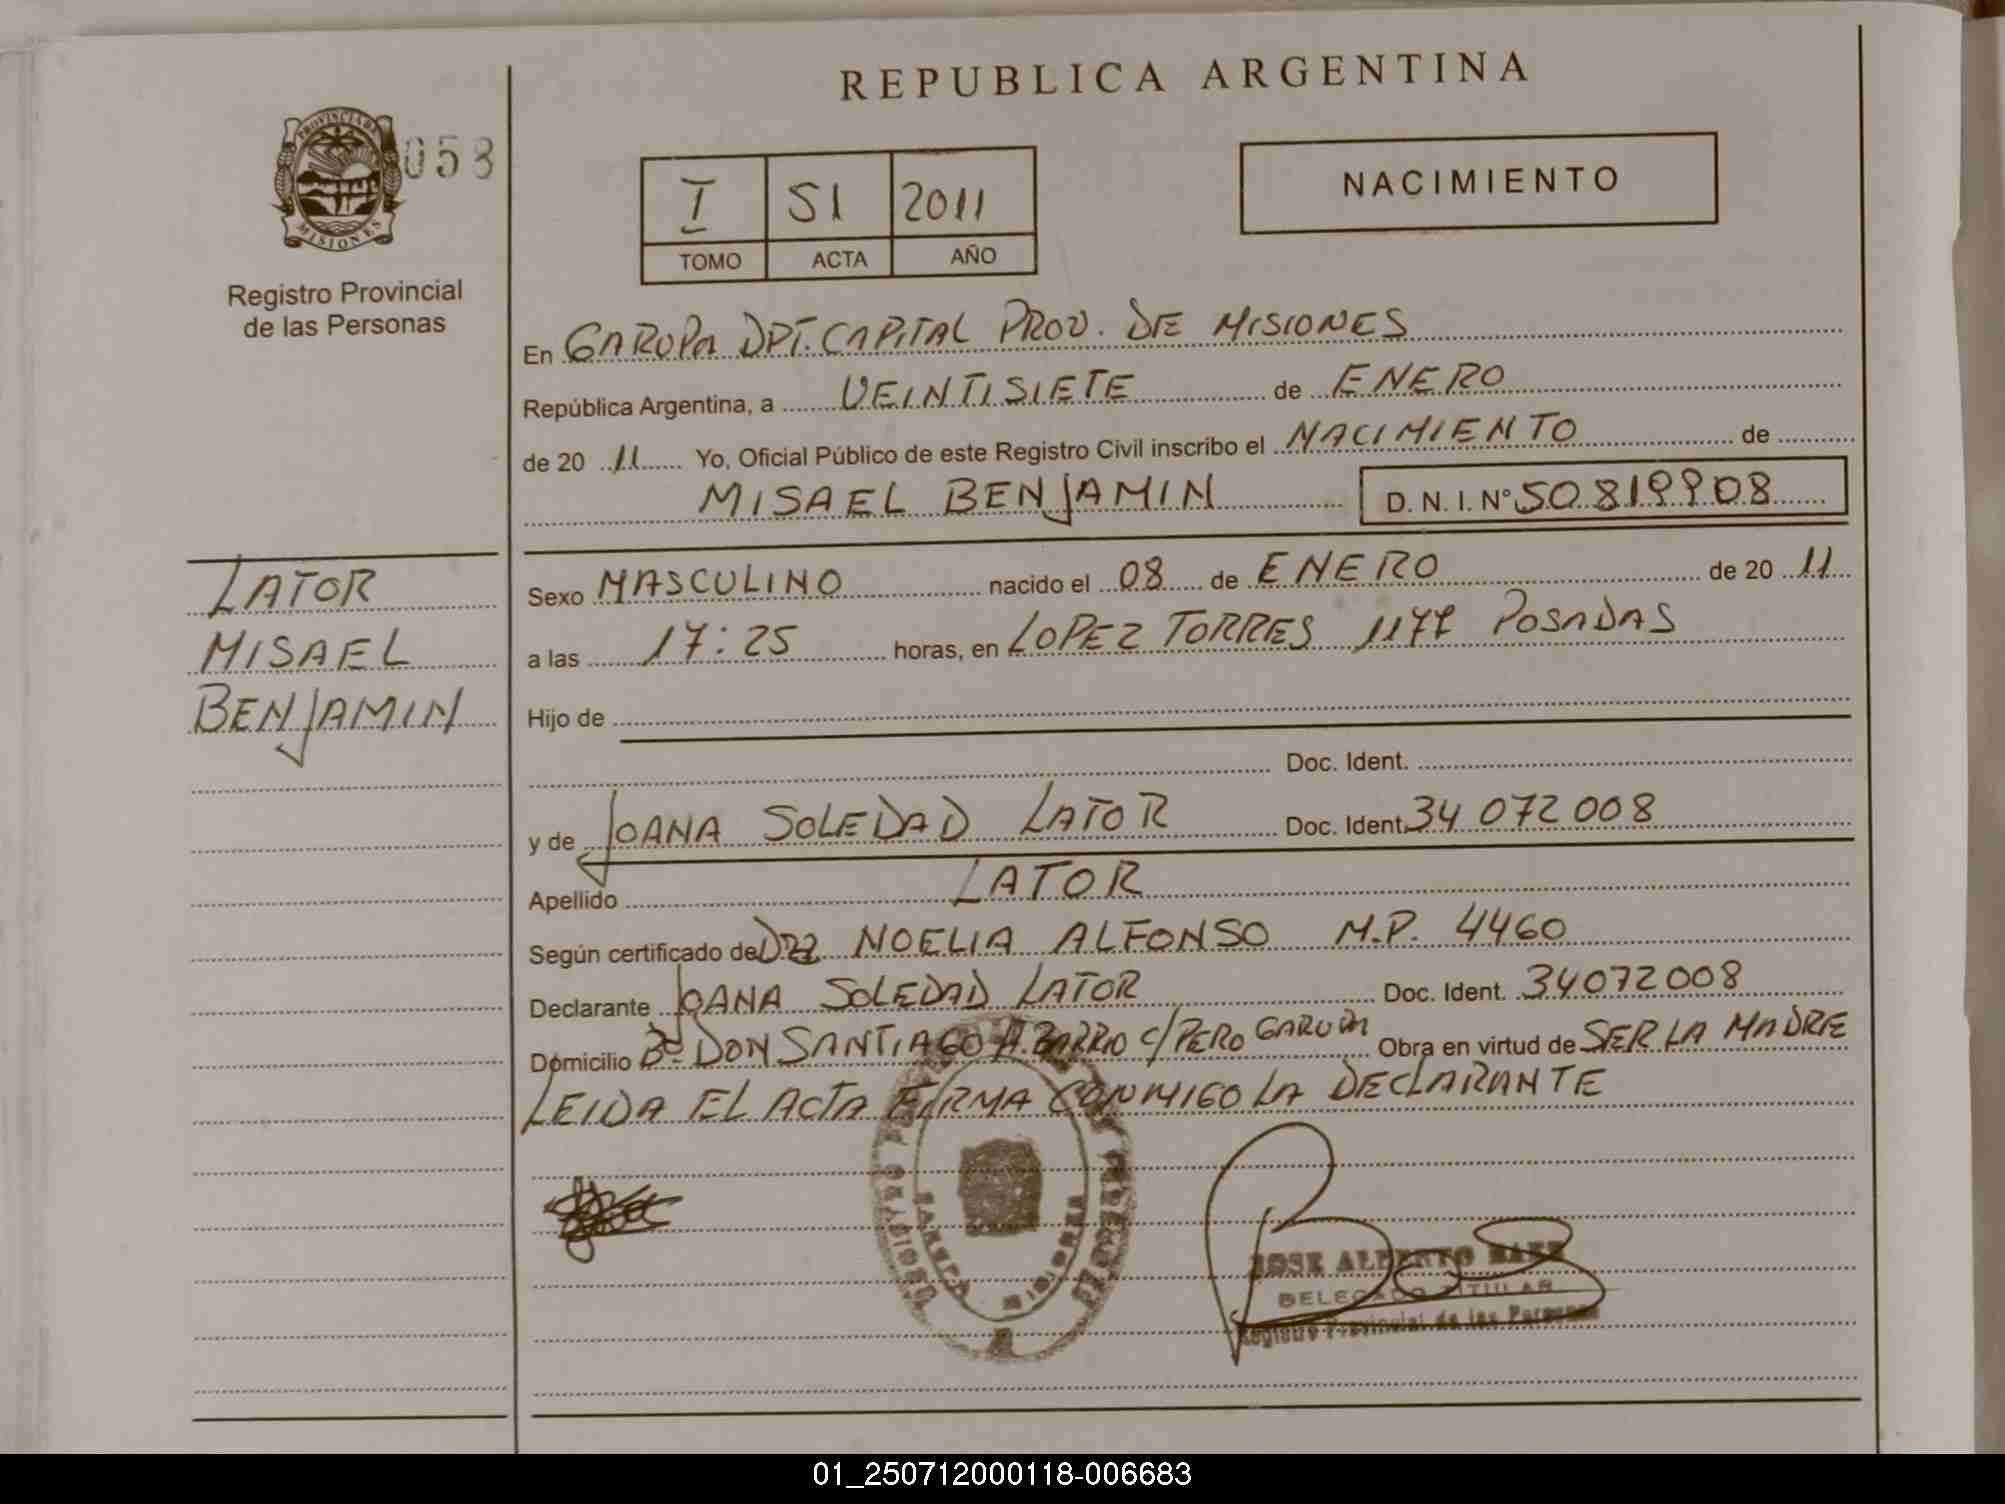 REPUBLICA ARGENTINA
PROVINCIA DE
MISIONES
053
Registro Provincial
de las Personas
I 51 2011
TOMO ACTA AÑO
NACIMIENTO
En GARUPA DPT. CAPITAL PROV. DE MISIONES
República Argentina, a VEINTISIETE de ENERO
de 20 11 Yo, Oficial Público de este Registro Civil inscribo el NACIMIENTO de
MISAEL BENJAMIN D. N. I. Nº 50.819908
LATOR
MISAEL
BENJAMIN
Sexo MASCULINO nacido el 08 de ENERO de 20 11
a las 17:25 horas, en LOPEZ TORRES 1177 POSADAS
Hijo de
Doc. Ident.
y de JOANA SOLEDAD LATOR Doc. Ident. 34 072 008
Apellido LATOR
Según certificado de Dra NOELIA ALFONSO M.P. 4460
Declarante JOANA SOLEDAD LATOR Doc. Ident. 34072008
Domicilio Bº DON SANTIAGO A. BARRIO C/PERO GARUPA Obra en virtud de SER LA MADRE
LEIDA EL ACTA FIRMA CONMIGO LA DECLARANTE
GARUPA MISIONES
JOSE ALBERTO BAEZ
DELEGADO TITULAR
Registro Provincial de las Personas
01_250712000118-006683